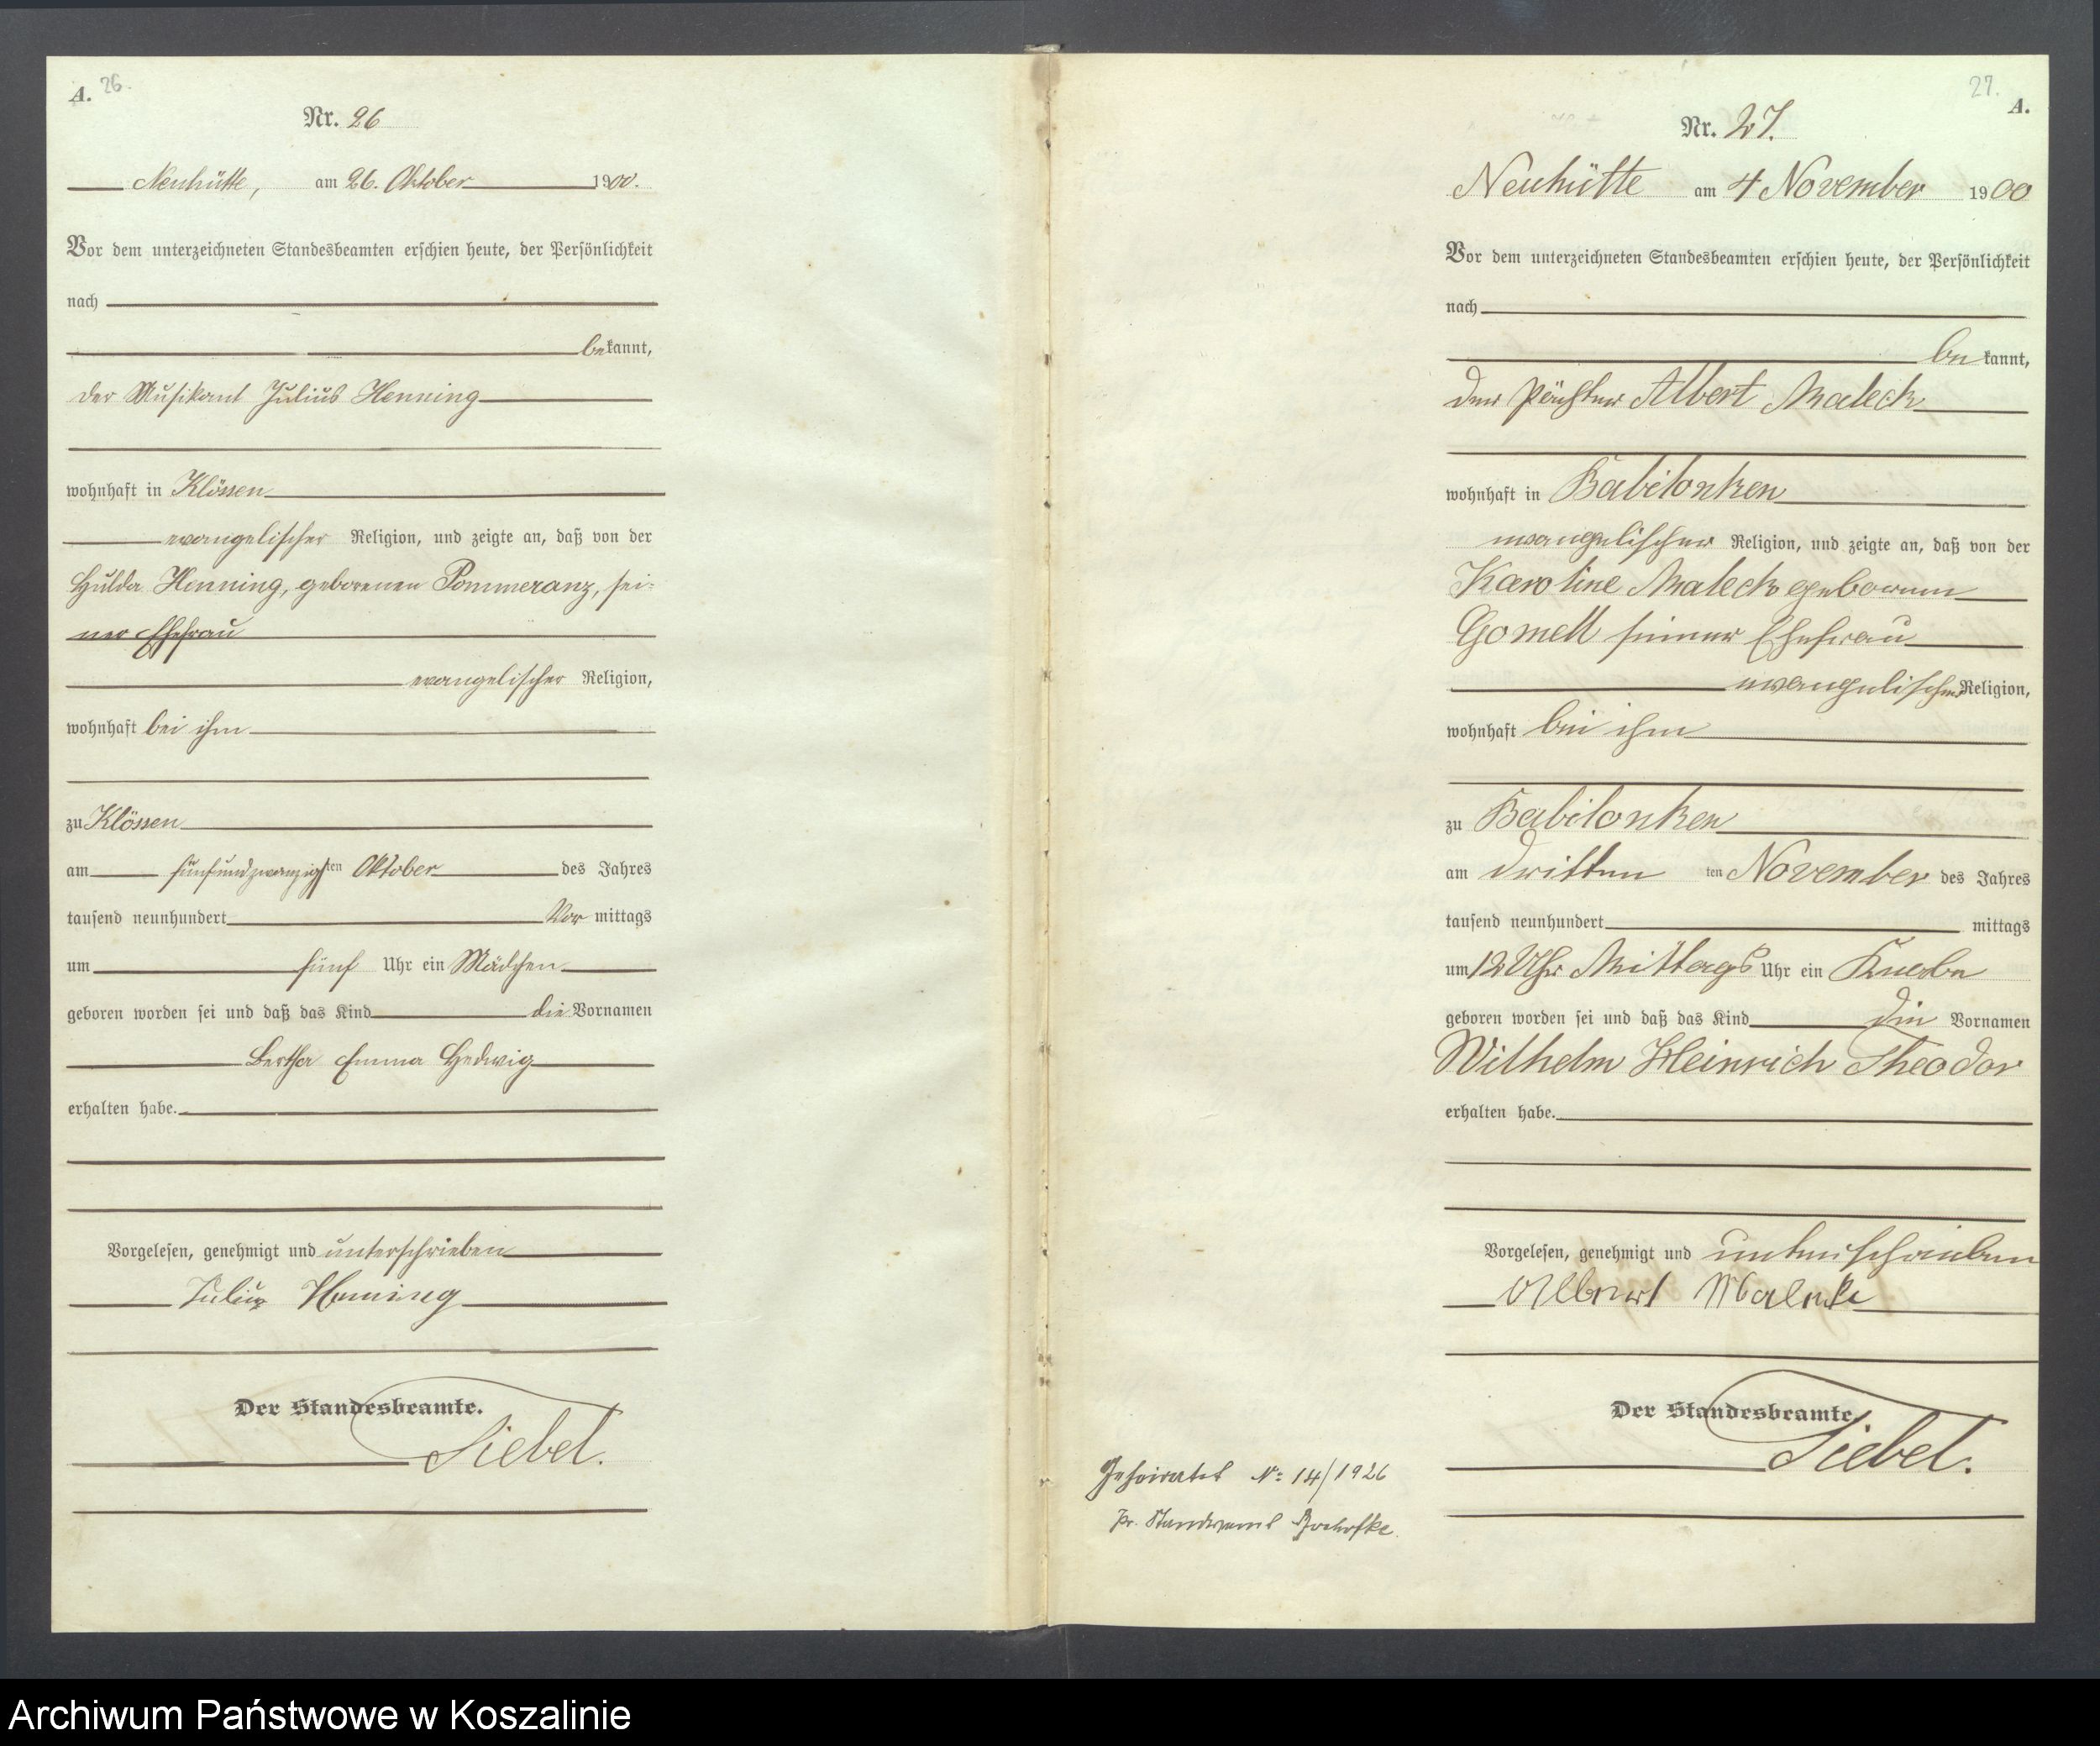 A. 26.
Nr. 26
Neuhütte, am 26. Oktober 1900.
Vor dem unterzeichneten Standesbeamten erschien heute, der Persönlichkeit
nach
bekannt,
der Musikant Julius Henning
wohnhaft in Klössen
evangelischer Religion, und zeigte an, daß von der
Hulda Henning, geborenen Pommeranz, sei-
ner Ehefrau
evangelischer Religion,
wohnhaft bei ihm
zu Klössen
am fünfundzwanzigsten Oktober des Jahres
tausend neunhundert Vor mittags
um fünf Uhr ein Mädchen
geboren worden sei und daß das Kind die Vornamen
Bertha Emma Hedwig
erhalten habe.
Vorgelesen, genehmigt und unterschrieben
Julius Henning
Der Standesbeamte.
Siebel.
27. A.
Nr. 27.
Neuhütte am 4 November 1900
Vor dem unterzeichneten Standesbeamten erschien heute, der Persönlichkeit
nach
bekannt,
der Pächter Albert Maleck
wohnhaft in Babilonken
evangelischer Religion, und zeigte an, daß von der
Karoline Maleck geborenen
Gomell seiner Ehefrau
evangelischer Religion,
wohnhaft bei ihm
zu Babilonken
am dritten ten November des Jahres
tausend neunhundert mittags
um 12 Uhr Mittags Uhr ein Knabe
geboren worden sei und daß das Kind die Vornamen
Wilhelm Heinrich Theodor
erhalten habe.
Vorgelesen, genehmigt und unterschrieben
Albert
Der Standesbeamte
Siebel.
Geheiratet No 14/1926
Pr. Standesamt
Archiwum Państwowe w Koszalinie